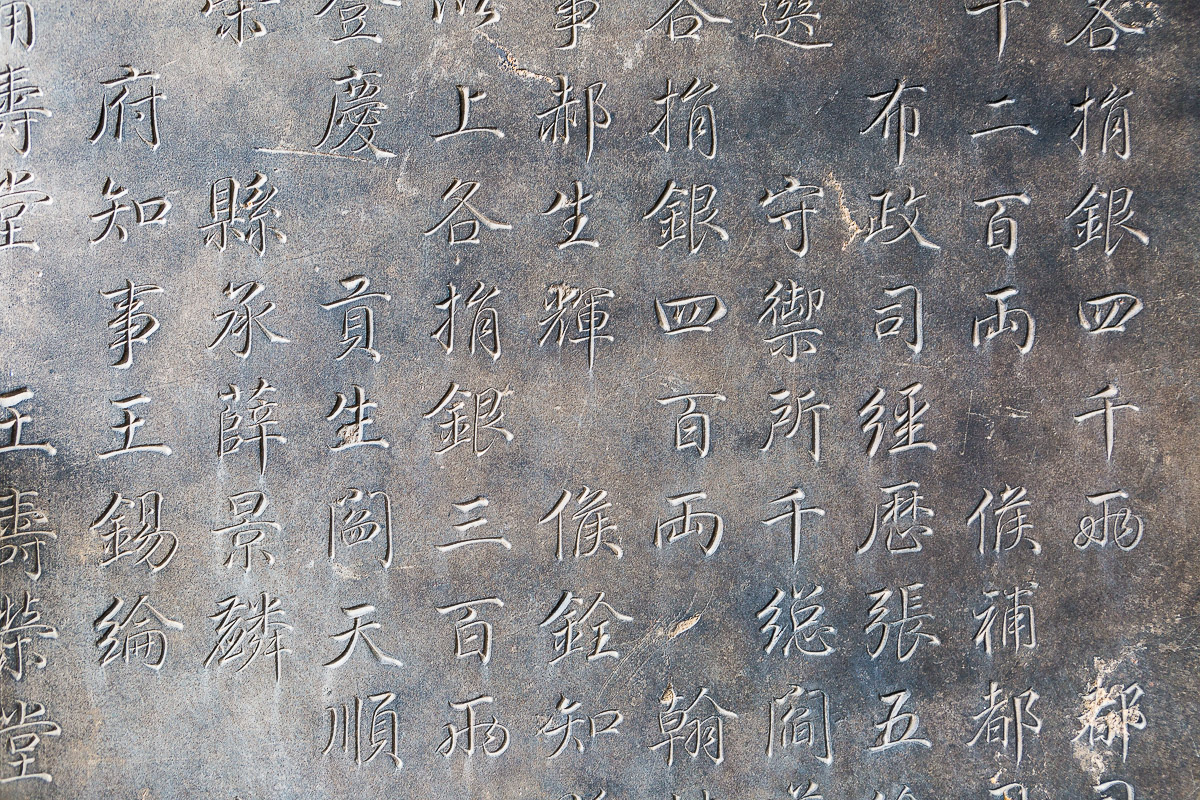 各捐銀四千兩 都司
千二百両 候補都司
布政司經歷張五
選 守禦所千総閻
各捐銀四百両 翰
事郝生輝 候銓知
以上各捐銀三百兩
登慶 貢生閻天順
榮 縣承薛景麟
府知事王錫綸
壽堂 王壽榮堂